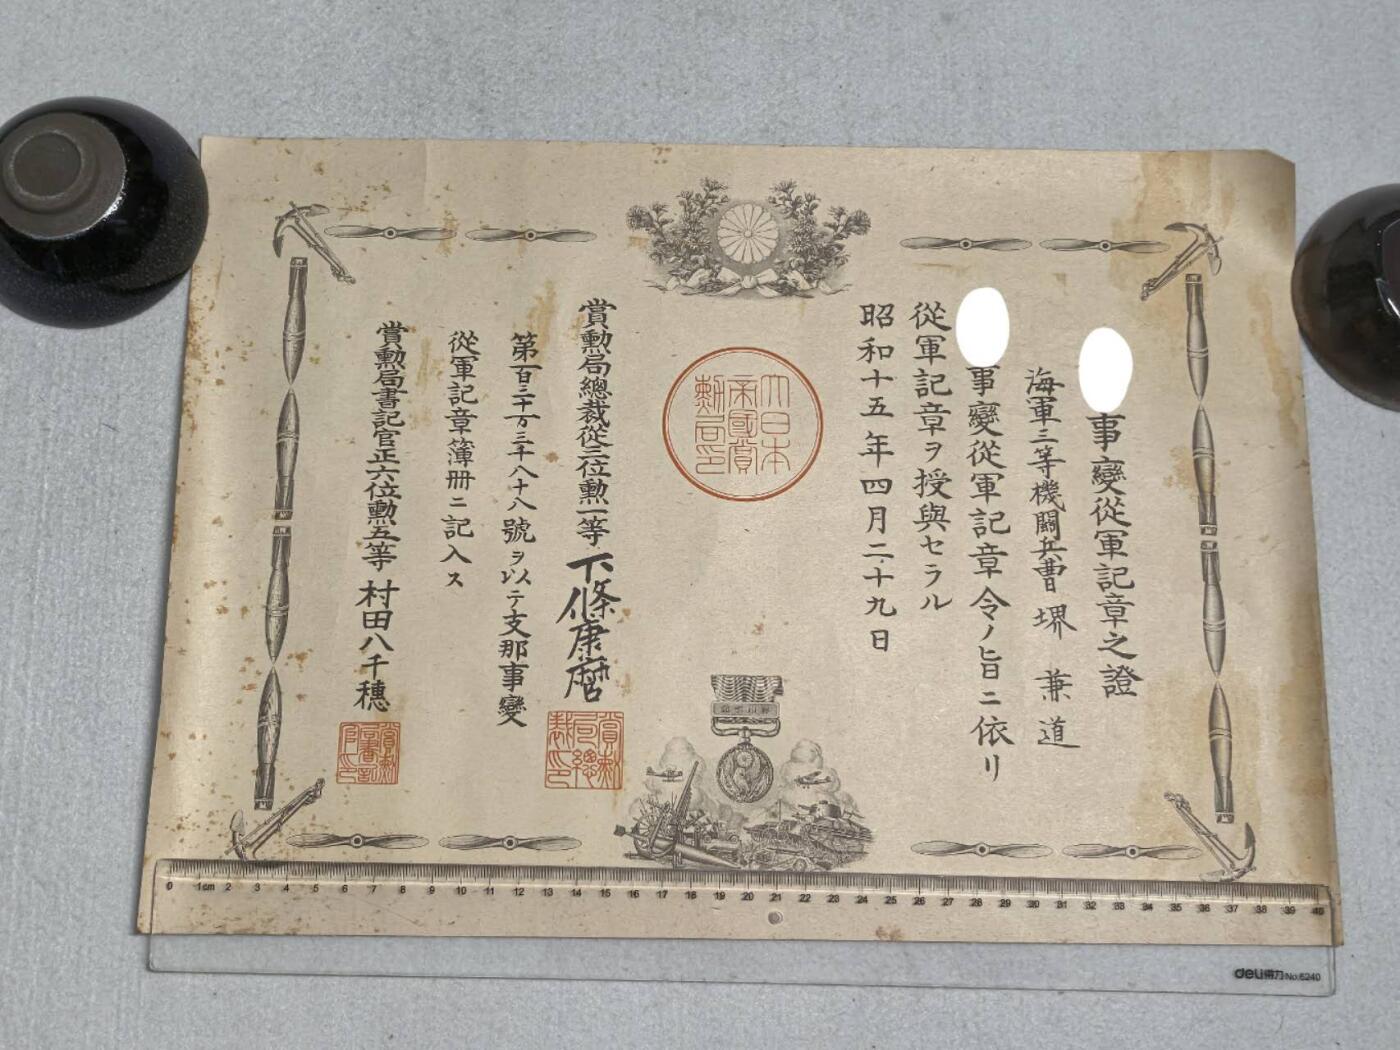 事變從軍記章之證
海軍三等機關兵曹 堺 兼道
事變從軍記章令ノ旨ニ依リ
從軍記章ヲ授與セラル
昭和十五年四月二十九日
大日本
帝國賞
勲局印
賞勲局總裁從三位勲一等 下條康麿
賞勲
局總
裁印
第百三十万三千八十八號ヲ以テ支那事變
從軍記章簿冊ニ記入ス
賞勲局書記官正六位勲五等 村田八千穗
賞勲
局書記
官印
0 1cm 2 3 4 5 6 7 8 9 10 11 12 13 14 15 16 17 18 19 20 21 22 23 24 25 26 27 28 29 30 31 32 33 34 35 36 37 38 39 40
deli得力 No.6240